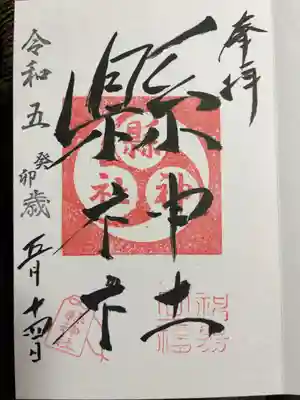 奉拝
縣神社
縣神社
令和五癸卯歳
五月十四日